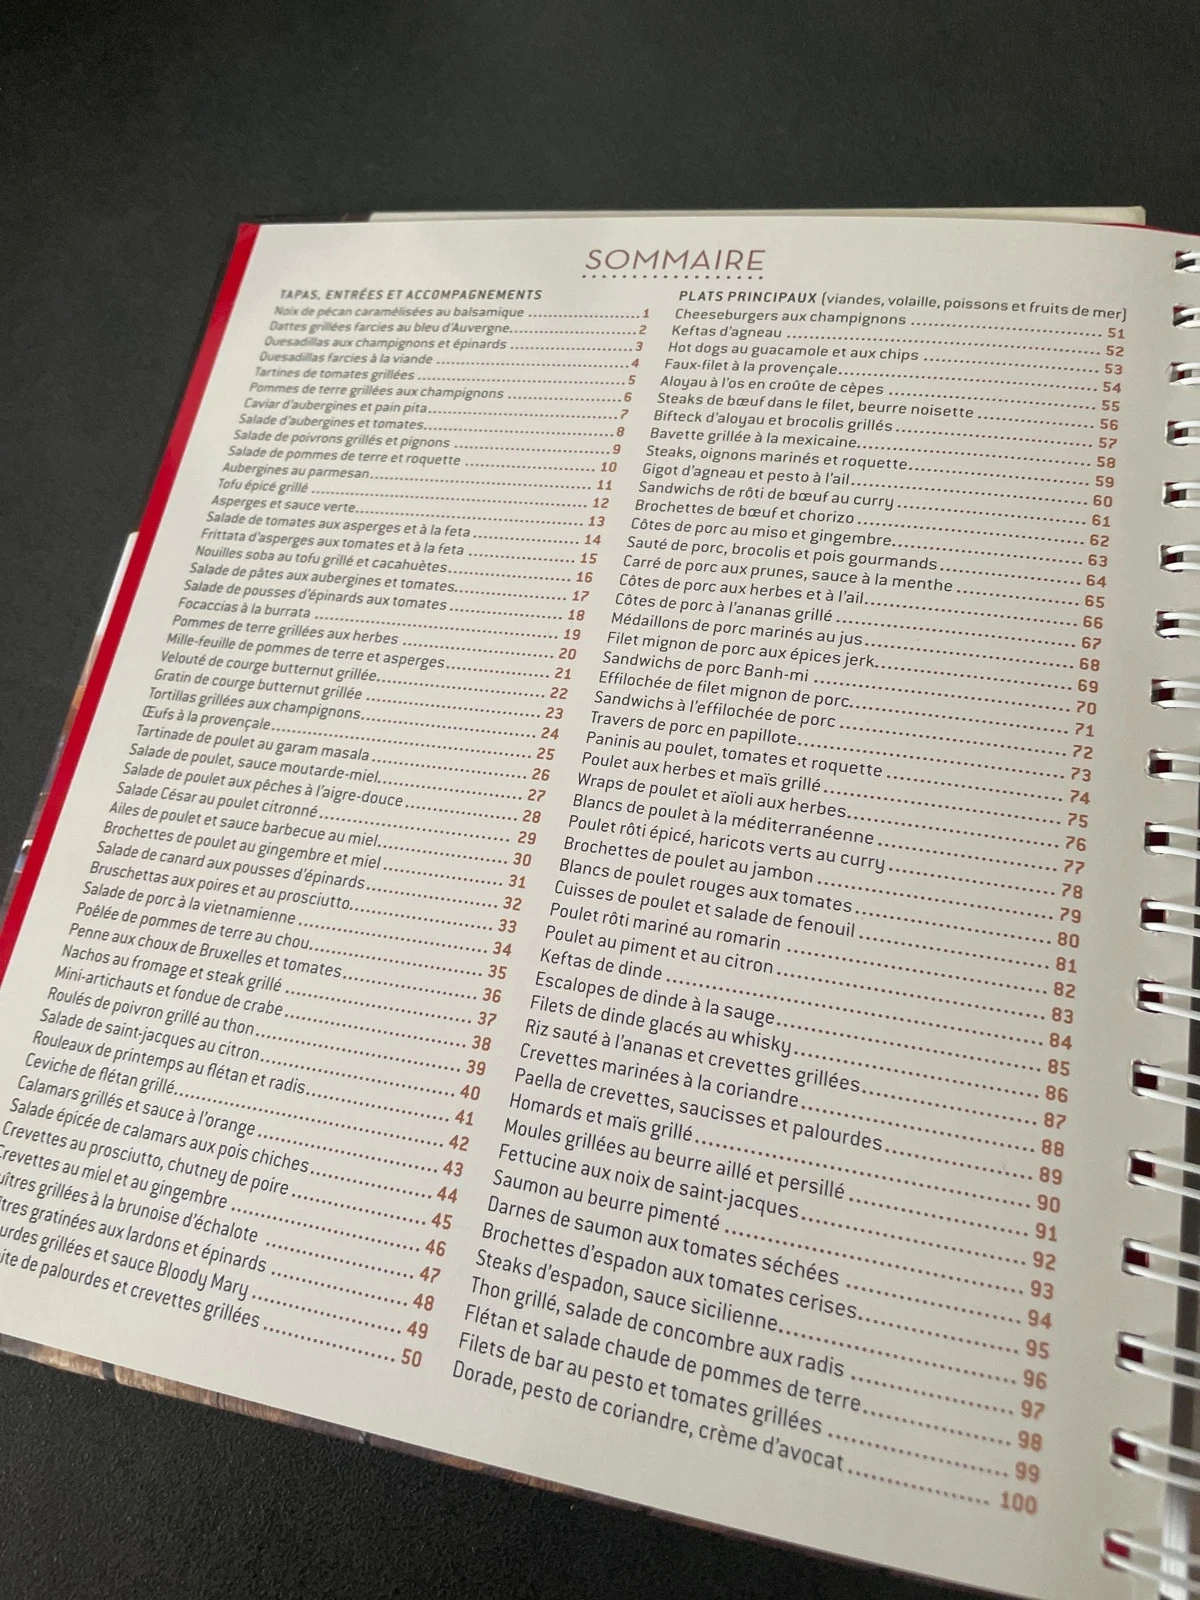 SOMMAIRE
TAPAS, ENTRÉES ET ACCOMPAGNEMENTS
Noix de pécan caramélisées au balsamique 1
Dattes grillées farcies au bleu d'Auvergne 2
Quesadillas aux champignons et épinards 3
Quesadillas farcies à la viande 4
Tartines de tomates grillées 5
Pommes de terre grillées aux champignons 6
Caviar d'aubergines et pain pita 7
Salade d'aubergines et tomates 8
Salade de poivrons grillés et pignons 9
Salade de pommes de terre et roquette 10
Aubergines au parmesan 11
Tofu épicé grillé 12
Asperges et sauce verte 13
Salade de tomates aux asperges et à la feta 14
Frittata d'asperges aux tomates et à la feta 15
Nouilles soba au tofu grillé et cacahuètes 16
Salade de pâtes aux aubergines et tomates 17
Salade de pousses d'épinards aux tomates 18
Focaccias à la burrata 19
Pommes de terre grillées aux herbes 20
Mille-feuille de pommes de terre et asperges 21
Velouté de courge butternut grillée 22
Gratin de courge butternut grillée 23
Tortillas grillées aux champignons 24
Œufs à la provençale 25
Tartinade de poulet au garam masala 26
Salade de poulet, sauce moutarde-miel 27
Salade de poulet aux pêches à l'aigre-douce 28
Salade César au poulet citronné 29
Ailes de poulet et sauce barbecue au miel 30
Brochettes de poulet au gingembre et miel 31
Salade de canard aux pousses d'épinards 32
Bruschettas aux poires et au prosciutto 33
Salade de porc à la vietnamienne 34
Poêlée de pommes de terre au chou 35
Penne aux choux de Bruxelles et tomates 36
Nachos au fromage et steak grillé 37
Mini-artichauts et fondue de crabe 38
Roulés de poivron grillé au thon 39
Salade de saint-jacques au citron 40
Rouleaux de printemps au flétan et radis 41
Ceviche de flétan grillé 42
Calamars grillés et sauce à l'orange 43
Salade épicée de calamars aux pois chiches 44
Crevettes au prosciutto, chutney de poire 45
revettes au miel et au gingembre 46
uîtres grillées à la brunoise d'échalote 47
tres gratinées aux lardons et épinards 48
urdes grillées et sauce Bloody Mary 49
ite de palourdes et crevettes grillées 50
PLATS PRINCIPAUX (viandes, volaille, poissons et fruits de mer)
Cheeseburgers aux champignons 51
Keftas d'agneau 52
Hot dogs au guacamole et aux chips 53
Faux-filet à la provençale 54
Aloyau à l'os en croûte de cèpes 55
Steaks de bœuf dans le filet, beurre noisette 56
Bifteck d'aloyau et brocolis grillés 57
Bavette grillée à la mexicaine 58
Steaks, oignons marinés et roquette 59
Gigot d'agneau et pesto à l'ail 60
Sandwichs de rôti de bœuf au curry 61
Brochettes de bœuf et chorizo 62
Côtes de porc au miso et gingembre 63
Sauté de porc, brocolis et pois gourmands 64
Carré de porc aux prunes, sauce à la menthe 65
Côtes de porc aux herbes et à l'ail 66
Côtes de porc à l'ananas grillé 67
Médaillons de porc marinés au jus 68
Filet mignon de porc aux épices jerk 69
Sandwichs de porc Banh-mi 70
Effilochée de filet mignon de porc 71
Sandwichs à l'effilochée de porc 72
Travers de porc en papillote 73
Paninis au poulet, tomates et roquette 74
Poulet aux herbes et maïs grillé 75
Wraps de poulet et aïoli aux herbes 76
Blancs de poulet à la méditerranéenne 77
Poulet rôti épicé, haricots verts au curry 78
Brochettes de poulet au jambon 79
Blancs de poulet rouges aux tomates 80
Cuisses de poulet et salade de fenouil 81
Poulet rôti mariné au romarin 82
Poulet au piment et au citron 83
Keftas de dinde 84
Escalopes de dinde à la sauge 85
Filets de dinde glacés au whisky 86
Riz sauté à l'ananas et crevettes grillées 87
Crevettes marinées à la coriandre 88
Paella de crevettes, saucisses et palourdes 89
Homards et maïs grillé 90
Moules grillées au beurre aillé et persillé 91
Fettucine aux noix de saint-jacques 92
Saumon au beurre pimenté 93
Darnes de saumon aux tomates séchées 94
Brochettes d'espadon aux tomates cerises 95
Steaks d'espadon, sauce sicilienne 96
Thon grillé, salade de concombre aux radis 97
Flétan et salade chaude de pommes de terre 98
Filets de bar au pesto et tomates grillées 99
Dorade, pesto de coriandre, crème d'avocat 100